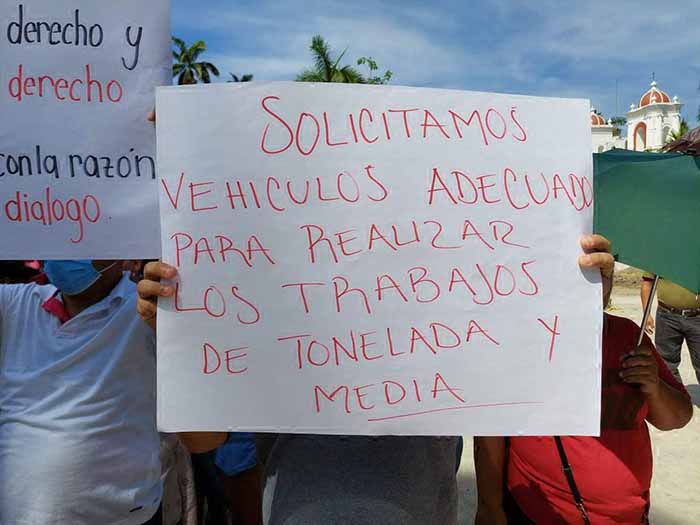 derecho y
derecho
con la razón
dialogo.
SOLICITAMOS
VEHICULOS ADECUADO
PARA REALIZAR
LOS TRABAJOS
DE TONELADA Y
MEDIA